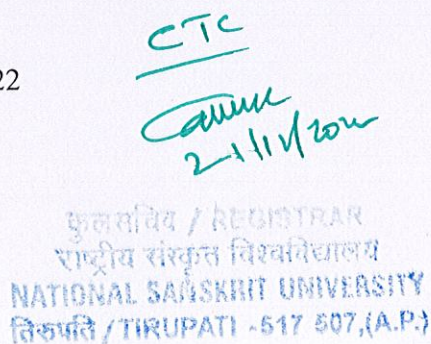 22
CTC
कुलसचिव / REGISTRAR
राष्ट्रीय संस्कृत विश्वविद्यालय
NATIONAL SANSKRIT UNIVERSITY
तिरुपति / TIRUPATI -517 507,(A.P.)